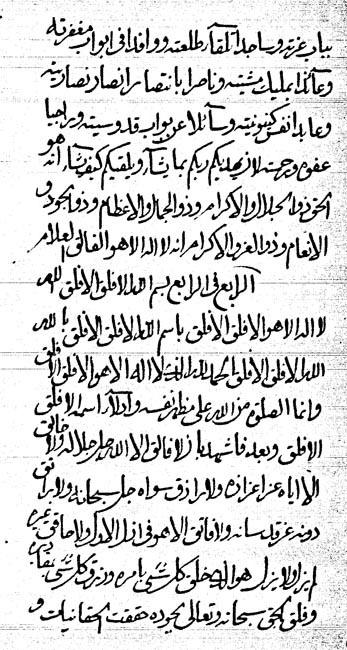 بباب عزته وساجدا تلقاء طلعته ووافدا في ابواب مغفرته
وعائذا بمليك مشيته وناصرا بانتصار انصار نصارته
وعابدا نفس كينونيته وسائلا عن بواب قدوسيته وراجيا
عفوه ورحمته لان يهديكم ربكم بما يشاء ويلقيكم كيف يشاء انه هو
الحق ذو الجلال والاكرام وذو الجمال والاعظام وذو الجود و
الانعام وذو العز والاكرام انه لا اله الا هو الفالق العلام
الرابع في الرابع بسم الله الافلق الافلق
لا اله الا هو الافلق الافلق باسم الله الافلق الافلق بالله
الله الافلق الافلق الحمد لله الذي لا اله الا هو الافلق الافلق
وانما الصلوة من الله على مظهر نفسه وادلاء اسمه الافلق
الافلق وبعد فاشهد بان لا فالق الا الله جل جلاله ولا خالق
الا اياه عز اعزازه ولا رازق سواه جل سبحانه ولا
دونه عز قدسانه ولا فائق الا هو في ازل الازال ولا حاقق غيره
لم يزل ولا يزال هو الذي خلق كل شيء بامره ورزق كل شيء
وفلق الحق سبحانه وتعالى بجوده حققت الحقانيات و